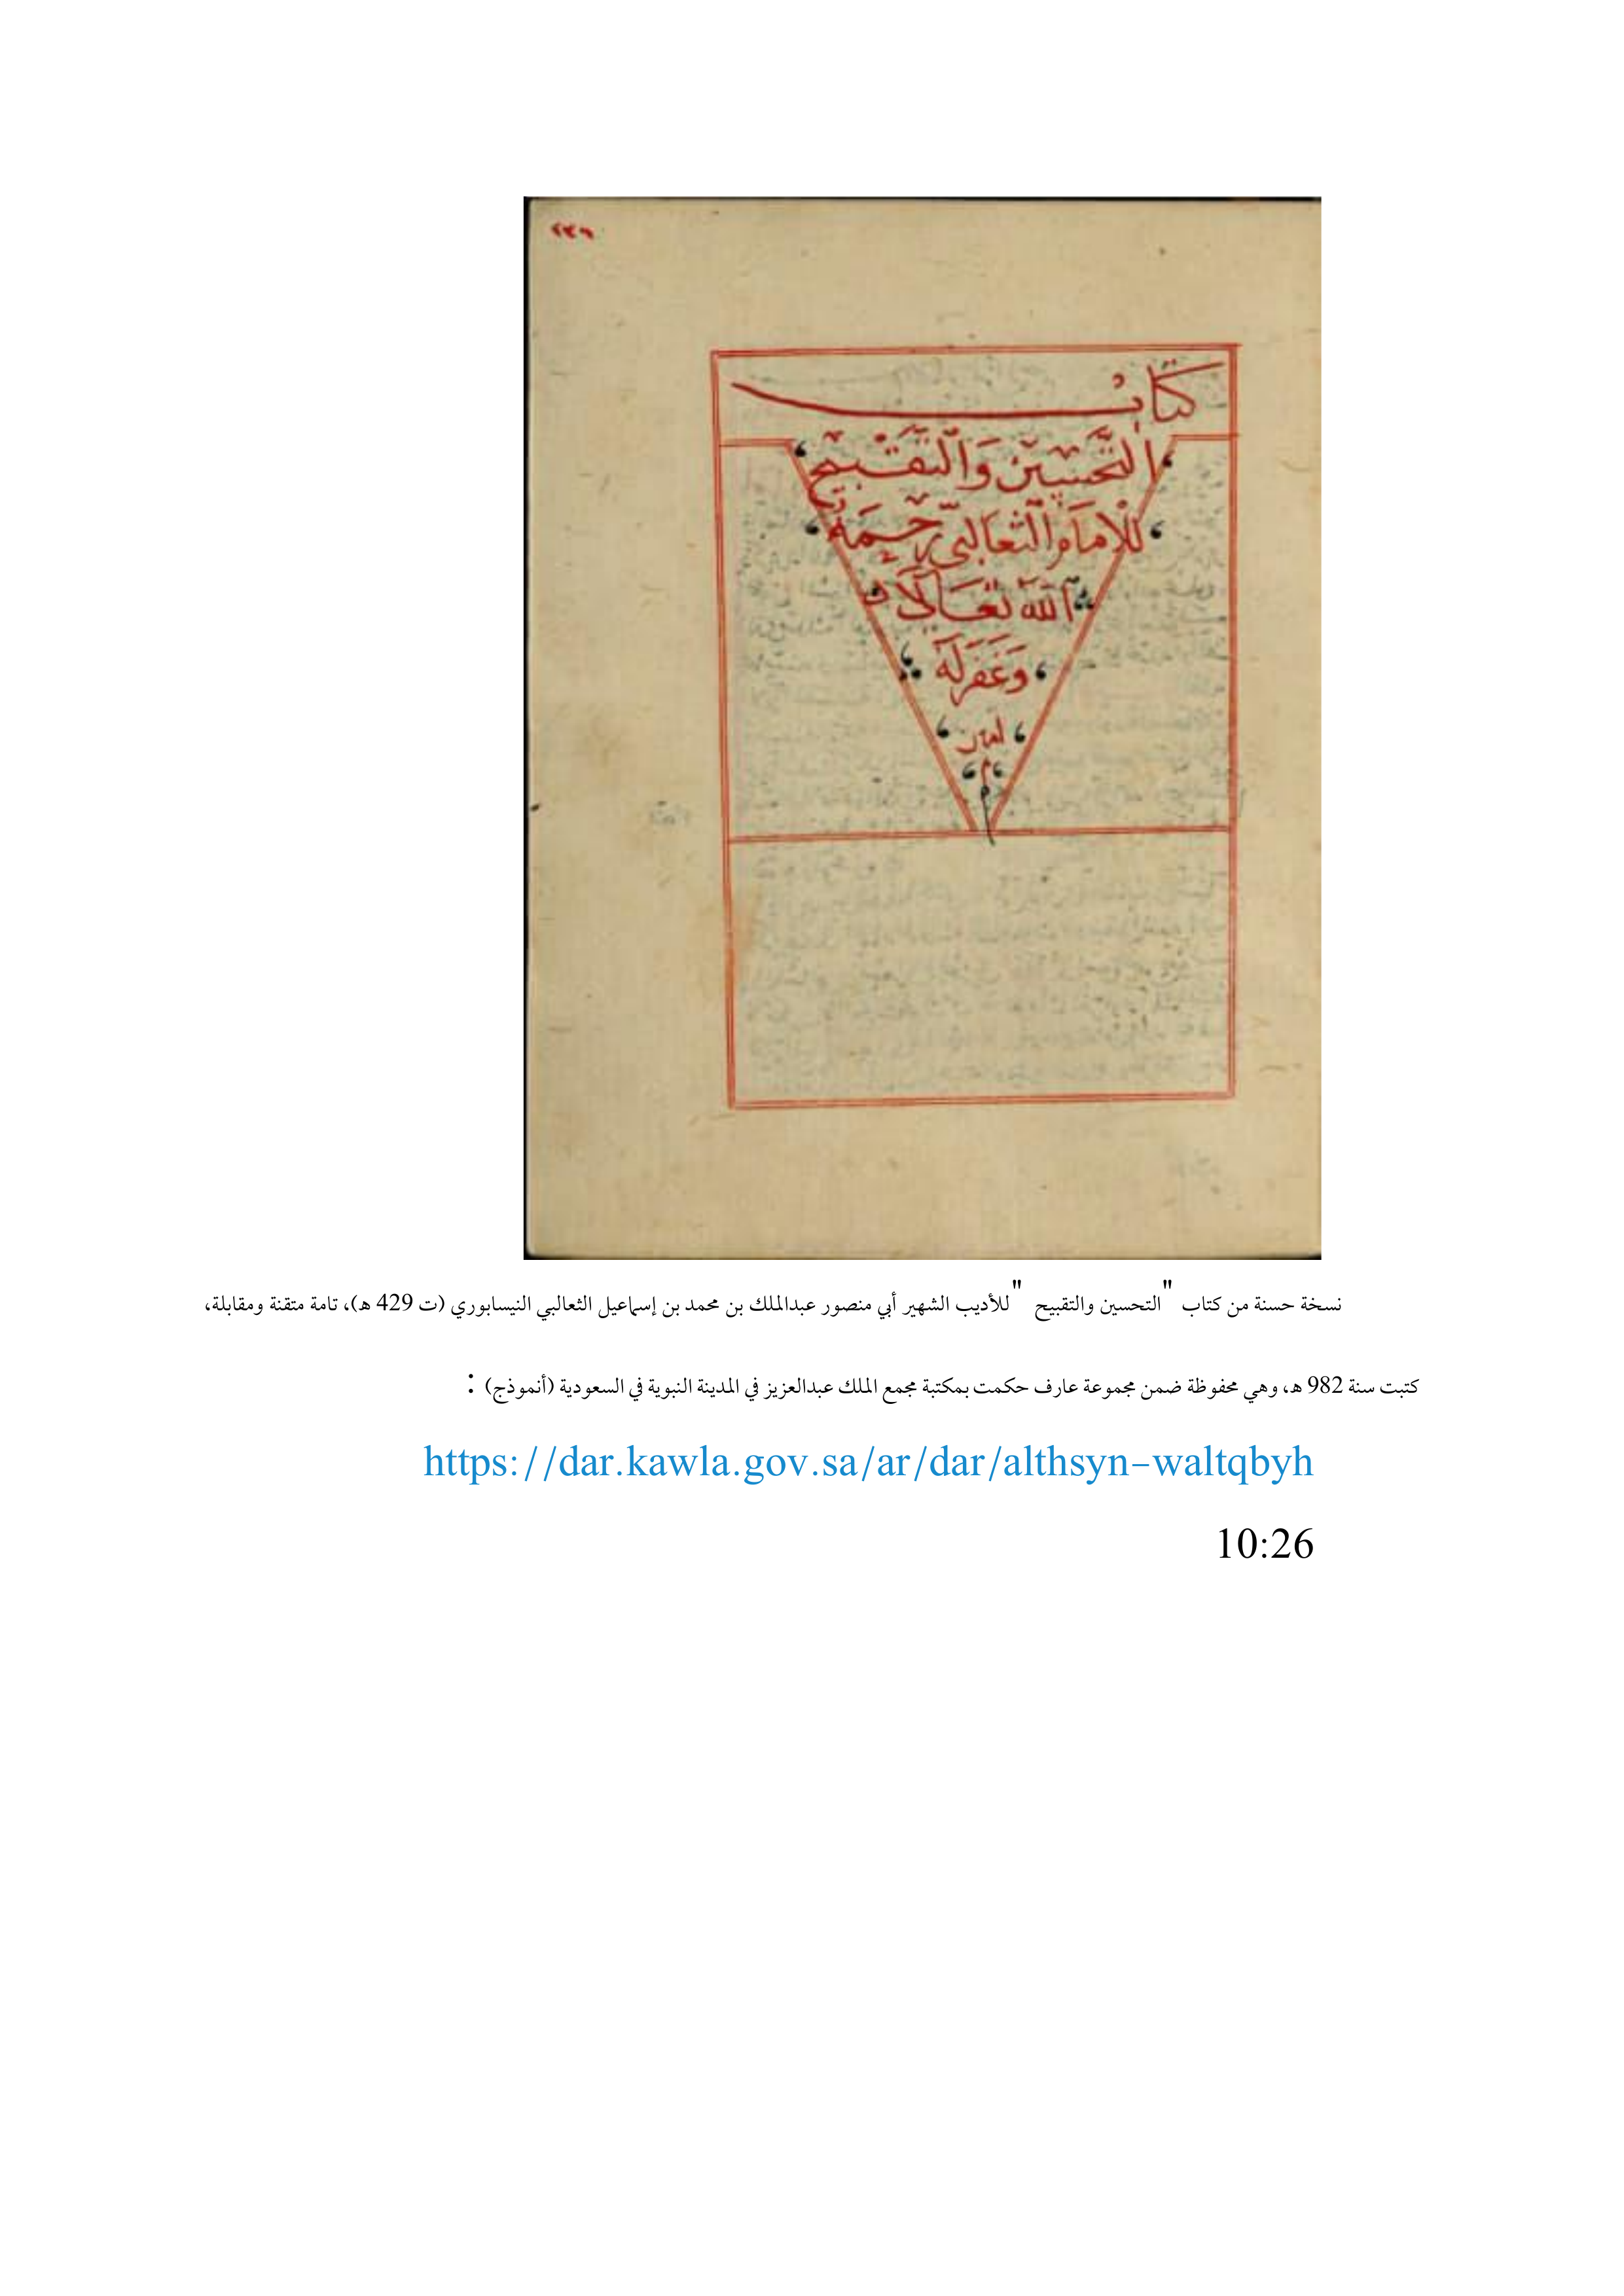 كتاب
التَّحْسِيْن وَالتَّقْبِيْح
للإمام الثعالبي رحمه
الله تعالى
وغفر له
امين
م
نسخة حسنة من كتاب "التحسين والتقبيح "للأديب الشهير أبي منصور عبدالملك بن محمد بن إسماعيل الثعالبي النيسابوري (ت 429 هـ)، تامة متقنة ومقابلة،
كتبت سنة 982 هـ، وهي محفوظة ضمن مجموعة عارف حكمت بمكتبة مجمع الملك عبدالعزيز في المدينة النبوية في السعودية (أنموذج) :
https://dar.kawla.gov.sa/ar/dar/althsyn-waltqbyh
10:26